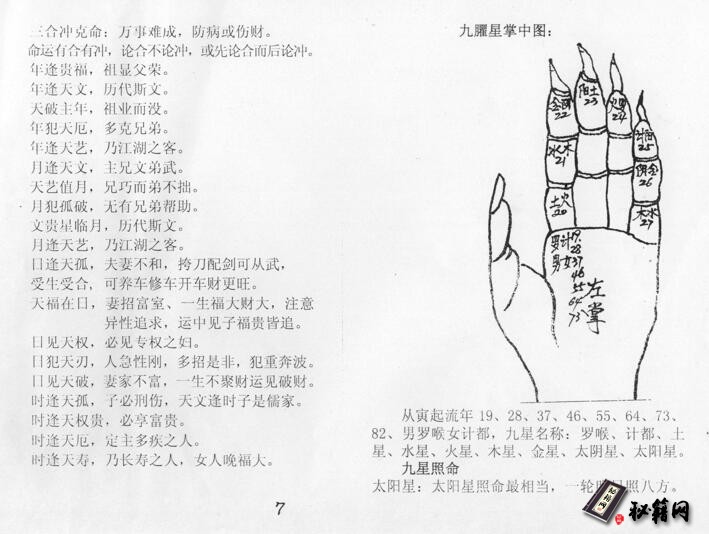 三合冲克命：万事难成，防病或伤财。
命运有合有冲，论合不论冲，或先论合而后论冲。
年逢贵福，祖显父荣。
年逢天文，历代斯文。
天破主年，祖业而没。
年犯天厄，多克兄弟。
年逢天艺，乃江湖之客。
月逢天文，主兄文弟武。
天艺值月，兄巧而弟不拙。
月犯孤破，无有兄弟帮助。
文贵星临月，历代斯文。
月逢天艺，乃江湖之客。
日逢天孤，夫妻不和，挎刀配剑可从武，
受生受合，可养车修车开车财更旺。
天福在日，妻招富室、一生福大财大，注意
异性追求，运中见子福贵皆追。
日见天权，必见专权之妇。
日犯天刃，人急性刚，多招是非，犯重奔波。
日见天破，妻家不富，一生不聚财运见破财。
时逢天孤，子必刑伤，天文逢时子是儒家。
时逢天权贵，必享富贵。
时逢天厄，定主多疾之人。
时逢天寿，乃长寿之人，女人晚福大。
7
九臞星掌中图：
22
土
23
24
25
水木
21
金
26
土火
20
木水
27
罗计19.
28
男女37
46
55
64
73
左
掌
从寅起流年 19、28、37、46、55、64、73、
82、男罗喉女计都，九星名称：罗喉、计都、土
星、水星、火星、木星、金星、太阴星、太阳星。
九星照命
太阳星：太阳星照命最相当，一轮照八方。
秘籍网